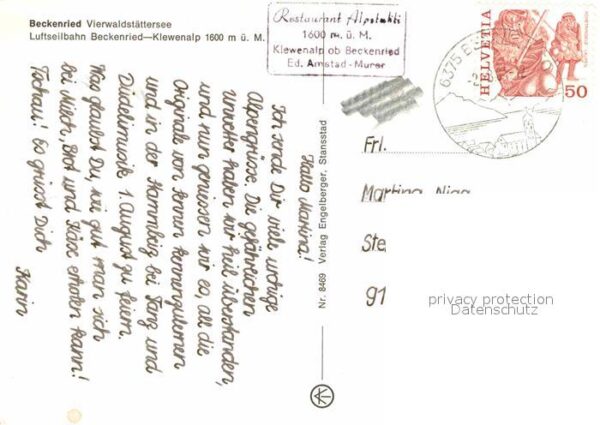 Beckenried Vierwaldstättersee
Luftseilbahn Beckenried—Klewenalp 1600 m ü. M.
Restaurant Alpstubli
1600 m. ü. M.
Klewenalp ob Beckenried
Ed. Amstad - Murer
HELVETIA
50
6375
Hallo Martina!
Ich sende Dir viele urchige
Alpengrüsse. Die gefährlichen
Unwetter haben wir heil überstanden,
und nun geniessen wir es, all die
Originale von Ihnen kennenzulernen
und in der Stammbeiz bei Tanz und
Lüdelimusik 1. August zu feiern.
Was glaubst Du, wie gut man sich
bei Milch, Brot und Käse erholen kann!
Tschau! Es grüsst Dich
Karin
Nr. 8469 Verlag Engelberger, Stansstad
Frl.
Martina
Ste
91
privacy protection
Datenschutz